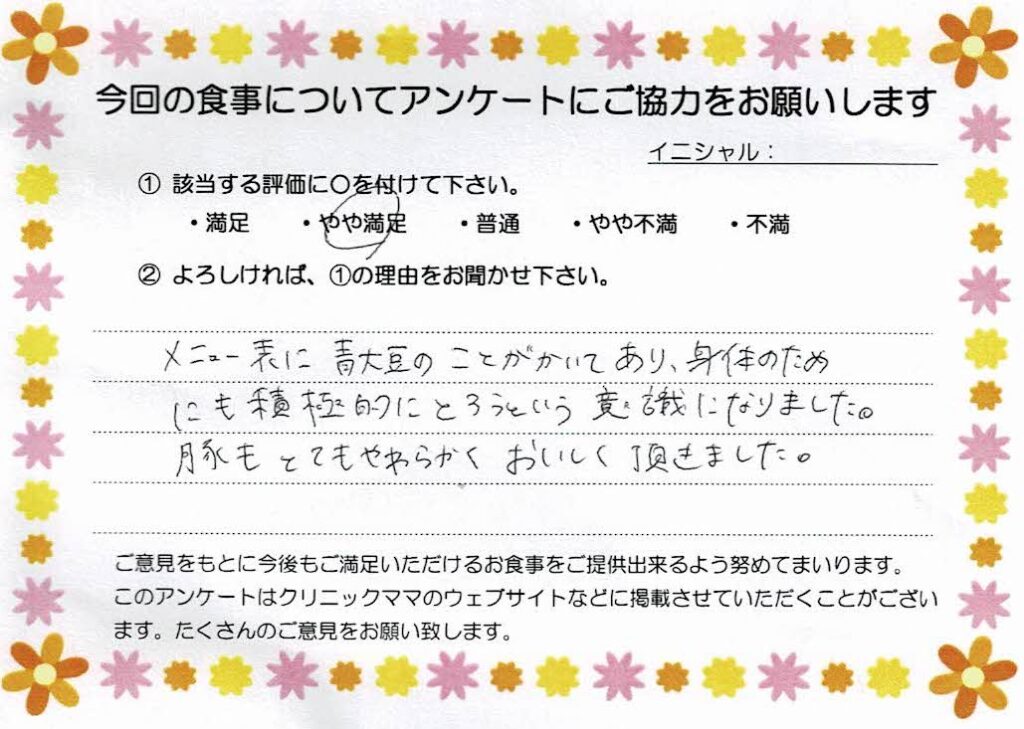 今回の食事についてアンケートにご協力をお願いします
イニシャル：
① 該当する評価に〇を付けて下さい。
・満足 ・やや満足 ・普通 ・やや不満 ・不満
② よろしければ、①の理由をお聞かせ下さい。
メニュー表に青大豆のことがかいてあり、身体のため
にも積極的にとろうという意識になりました。
豚もとてもやわらかくおいしく頂きました。
ご意見をもとに今後もご満足いただけるお食事をご提供出来るよう努めてまいります。
このアンケートはクリニックママのウェブサイトなどに掲載させていただくことがござい
ます。たくさんのご意見をお願い致します。